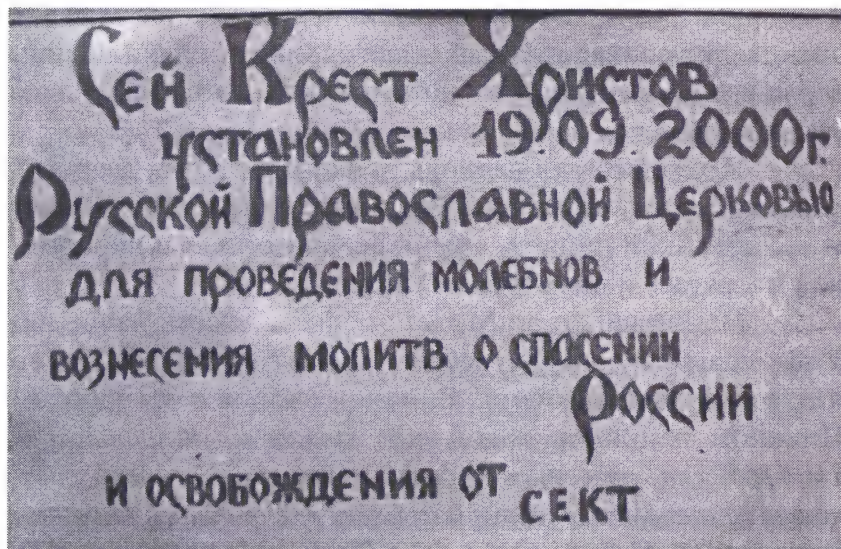 Сей Крест Христов
установлен 19.09.2000г.
Русской Православной Церковью
для проведения молебнов и
вознесения молитв о спасении
России
и освобождения от сект